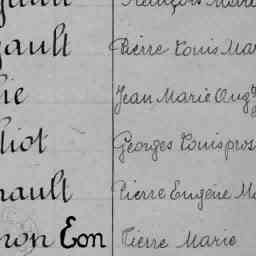 ault Pierre Louis Mar
ie Jean Marie Aug
liot Georges Louis pros
nault Pierre Eugène M
ron Eon Pierre Marie